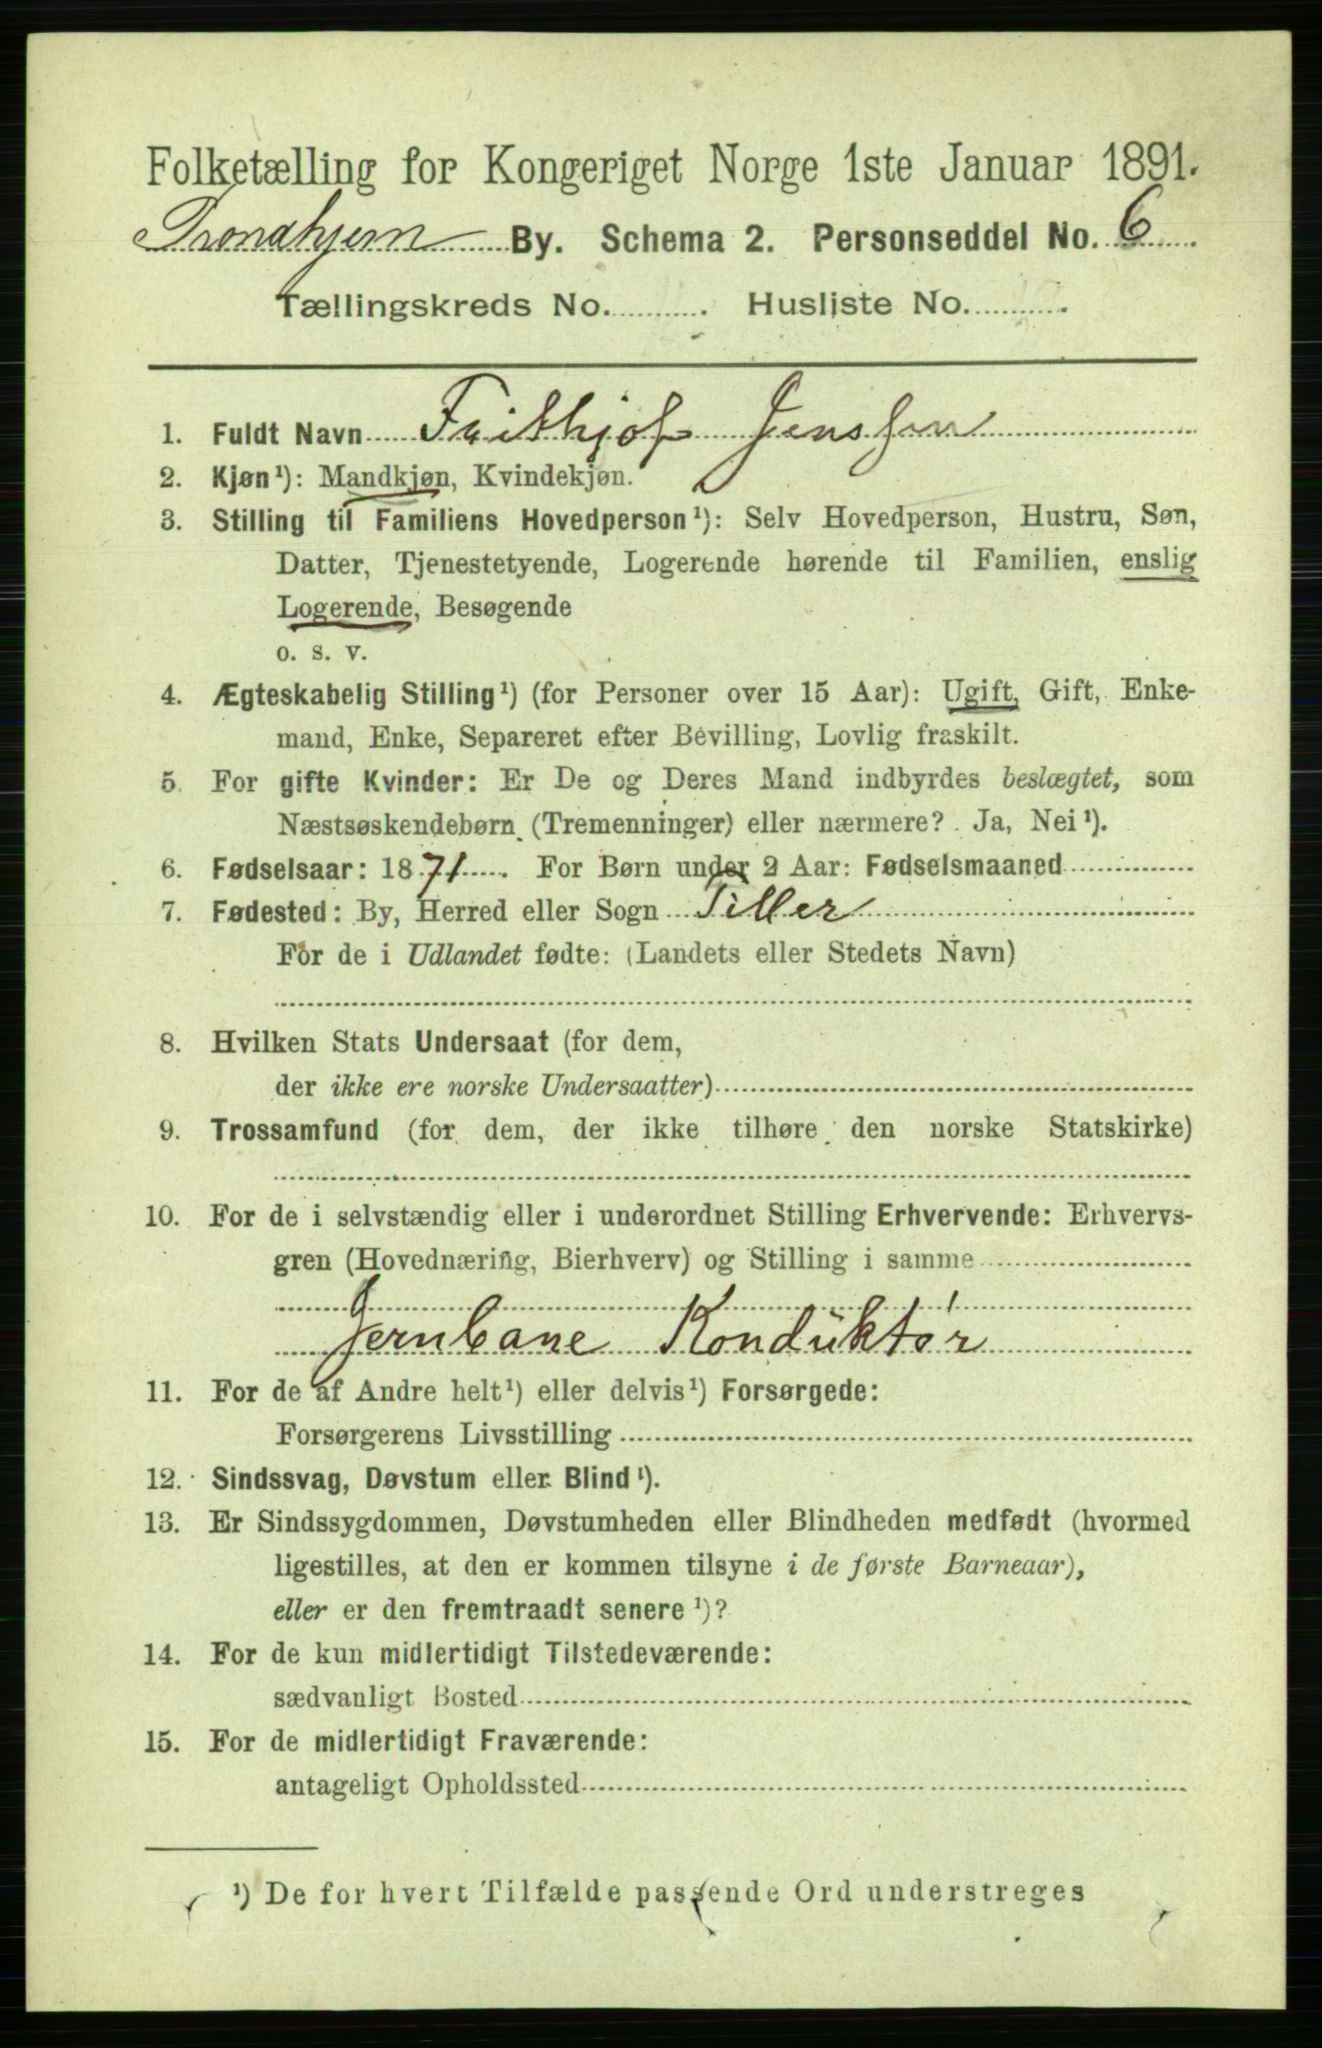 Folketælling for Kongeriget Norge 1ste Januar 1891.
Trondhjem By. Schema 2. Personseddel No. 6
Tællingskreds No. . Husliste No. .
1. Fuldt Navn Frithjof Jenssen
2. Kjøn¹): Mandkjøn, Kvindekjøn.
3. Stilling til Familiens Hovedperson¹): Selv Hovedperson, Hustru, Søn,
Datter, Tjenestetyende, Logerende hørende til Familien, enslig
Logerende, Besøgende
o. s. v.
4. Ægteskabelig Stilling¹) (for Personer over 15 Aar): Ugift, Gift, Enke-
mand, Enke, Separeret efter Bevilling, Lovlig fraskilt.
5. For gifte Kvinder: Er De og Deres Mand indbyrdes beslægtet, som
Næstsøskendebørn (Tremenninger) eller nærmere? Ja, Nei¹).
6. Fødselsaar: 1871. For Børn under 2 Aar: Fødselsmaaned
7. Fødested: By, Herred eller Sogn Tiller
For de i Udlandet fødte: (Landets eller Stedets Navn)
8. Hvilken Stats Undersaat (for dem,
der ikke ere norske Undersaatter)
9. Trossamfund (for dem, der ikke tilhøre den norske Statskirke)
10. For de i selvstændig eller i underordnet Stilling Erhvervende: Erhvervs-
gren (Hovednæring, Bierhverv) og Stilling i samme
Jernbane Konduktør
11. For de af Andre helt¹) eller delvis¹) Forsørgede:
Forsørgerens Livsstilling
12. Sindssvag, Døvstum eller Blind¹).
13. Er Sindssygdommen, Døvstumheden eller Blindheden medfødt (hvormed
ligestilles, at den er kommen tilsyne i de første Barneaar),
eller er den fremtraadt senere¹)?
14. For de kun midlertidigt Tilstedeværende:
sædvanligt Bosted
15. For de midlertidigt Fraværende:
antageligt Opholdssted
¹) De for hvert Tilfælde passende Ord understreges